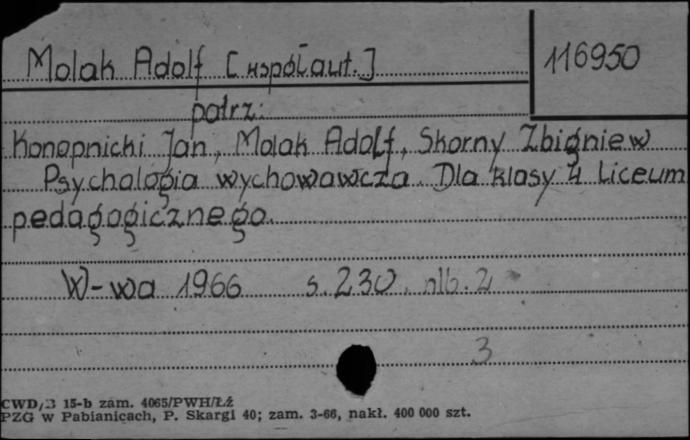 Molak Adolf [współaut.]
116950
patrz:
Konopnicki Jan, Molak Adolf, Skorny Zbigniew
Psychologia wychowawcza. Dla klasy 4 Liceum
pedagogicznego.
W-wa 1966 s. 230, nlb. 2
3
CWD/3 15-b zam. 4065/PWH/Łż
PZG w Pabianicach, P. Skargi 40; zam. 3-66, nakł. 400 000 szt.